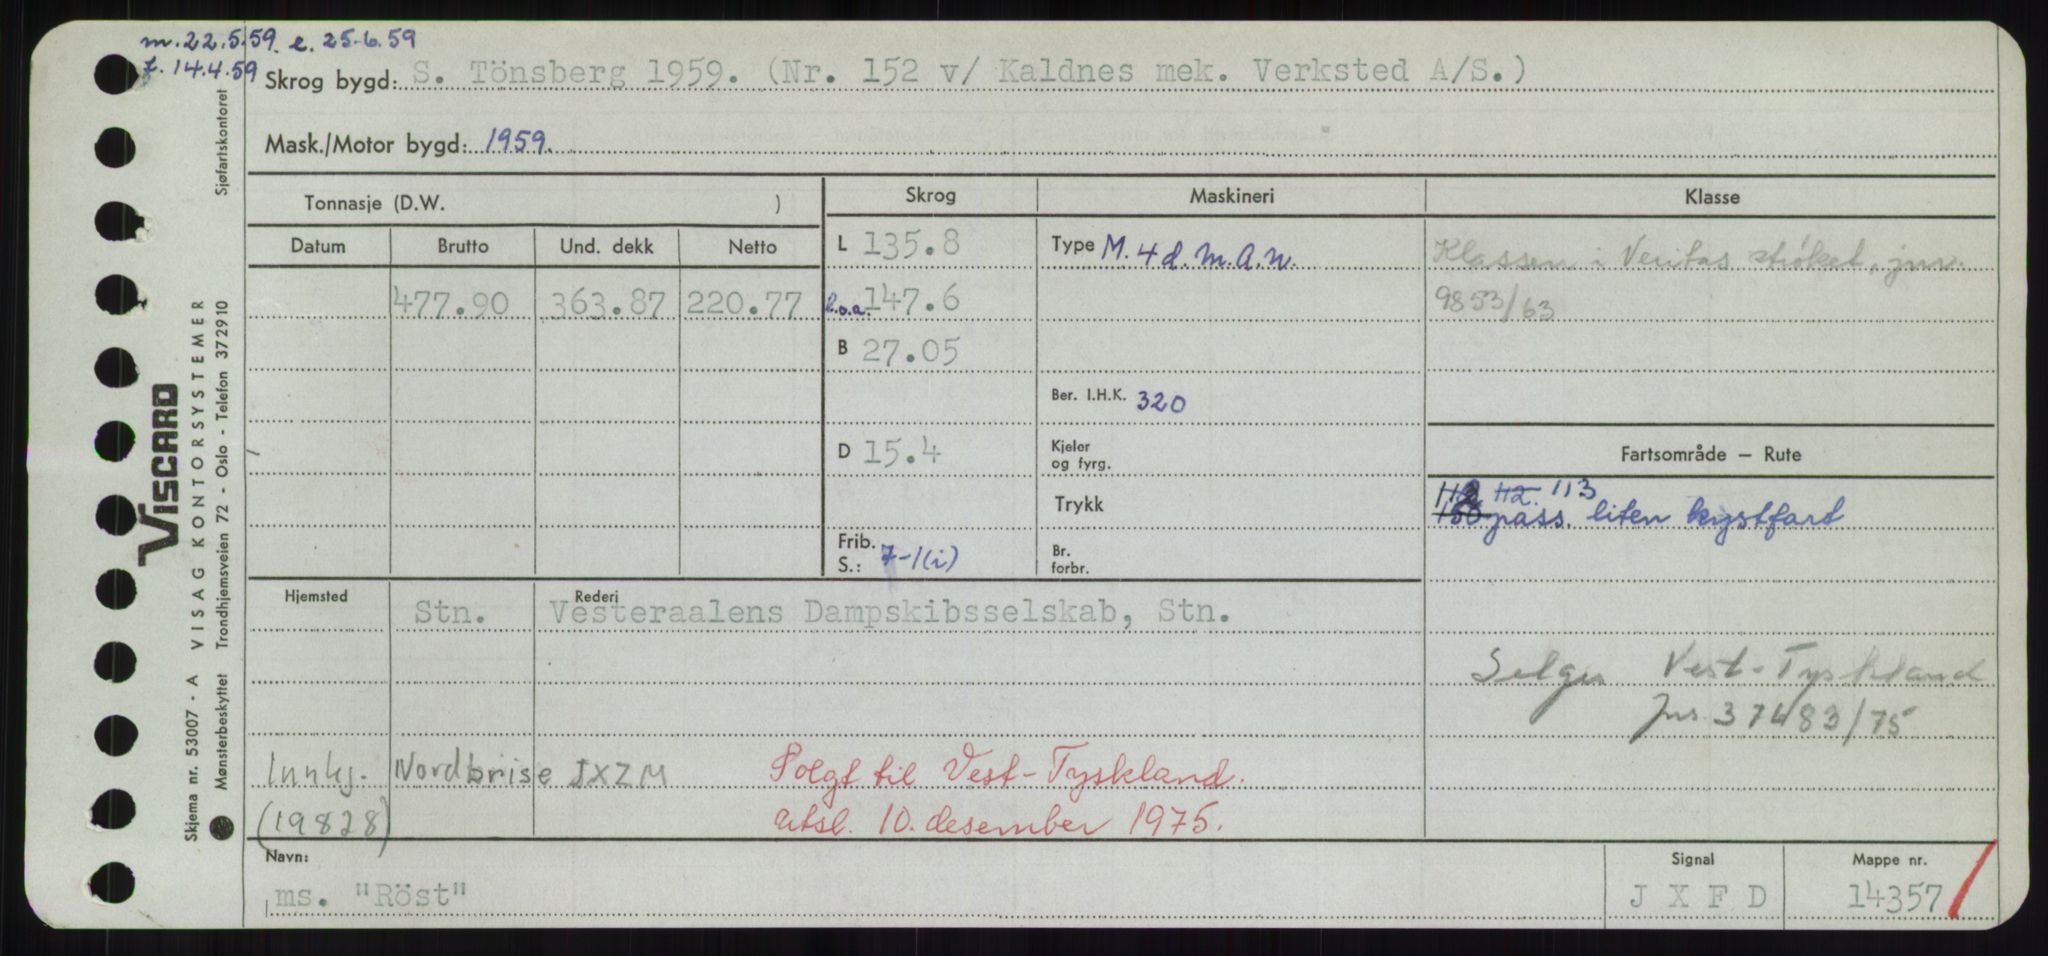 m. 22.5.59. e. 25.6.59
f. 14.4.59
Skrog bygd: S. Tönsberg 1959. (Nr. 152 v/ Kaldnes mek. Verksted A/S.)
Mask./Motor bygd: 1959.
Tonnasje (D.W. ) Skrog Maskineri Klasse
Datum Brutto Und. dekk Netto
L 135.8 Type M. 4 d. M.A.N. Klassen i Veritas strøket, jnr.
477.90 363.87 220.77 l.o.a. 147.6 9853/63
B 27.05
Ber. I.H.K. 320
D 15.4 Kjeler og fyrg. Fartsområde — Rute
Trykk 112. 113
150 pass. liten kystfart
Frib. S.: 7-1(i) Br. forbr.
Hjemsted Rederi
Stn. Vesteraalens Dampskibsselskab, Stn.
Selges Vest-Tyskland
Jnr. 37483/75
Innkj. Nordbrise JXZM Solgt til Vest-Tyskland.
(19828) utsl. 10. desember 1975.
Navn: Signal Mappe nr.
ms. "Röst" J X F D 14357
VISCARD
VISAG KONTORSYSTEMER
Skjema nr. 53007 - A
Mønsterbeskyttet Trondhjemsveien 72 - Oslo - Telefon 372910 Sjøfartskontoret